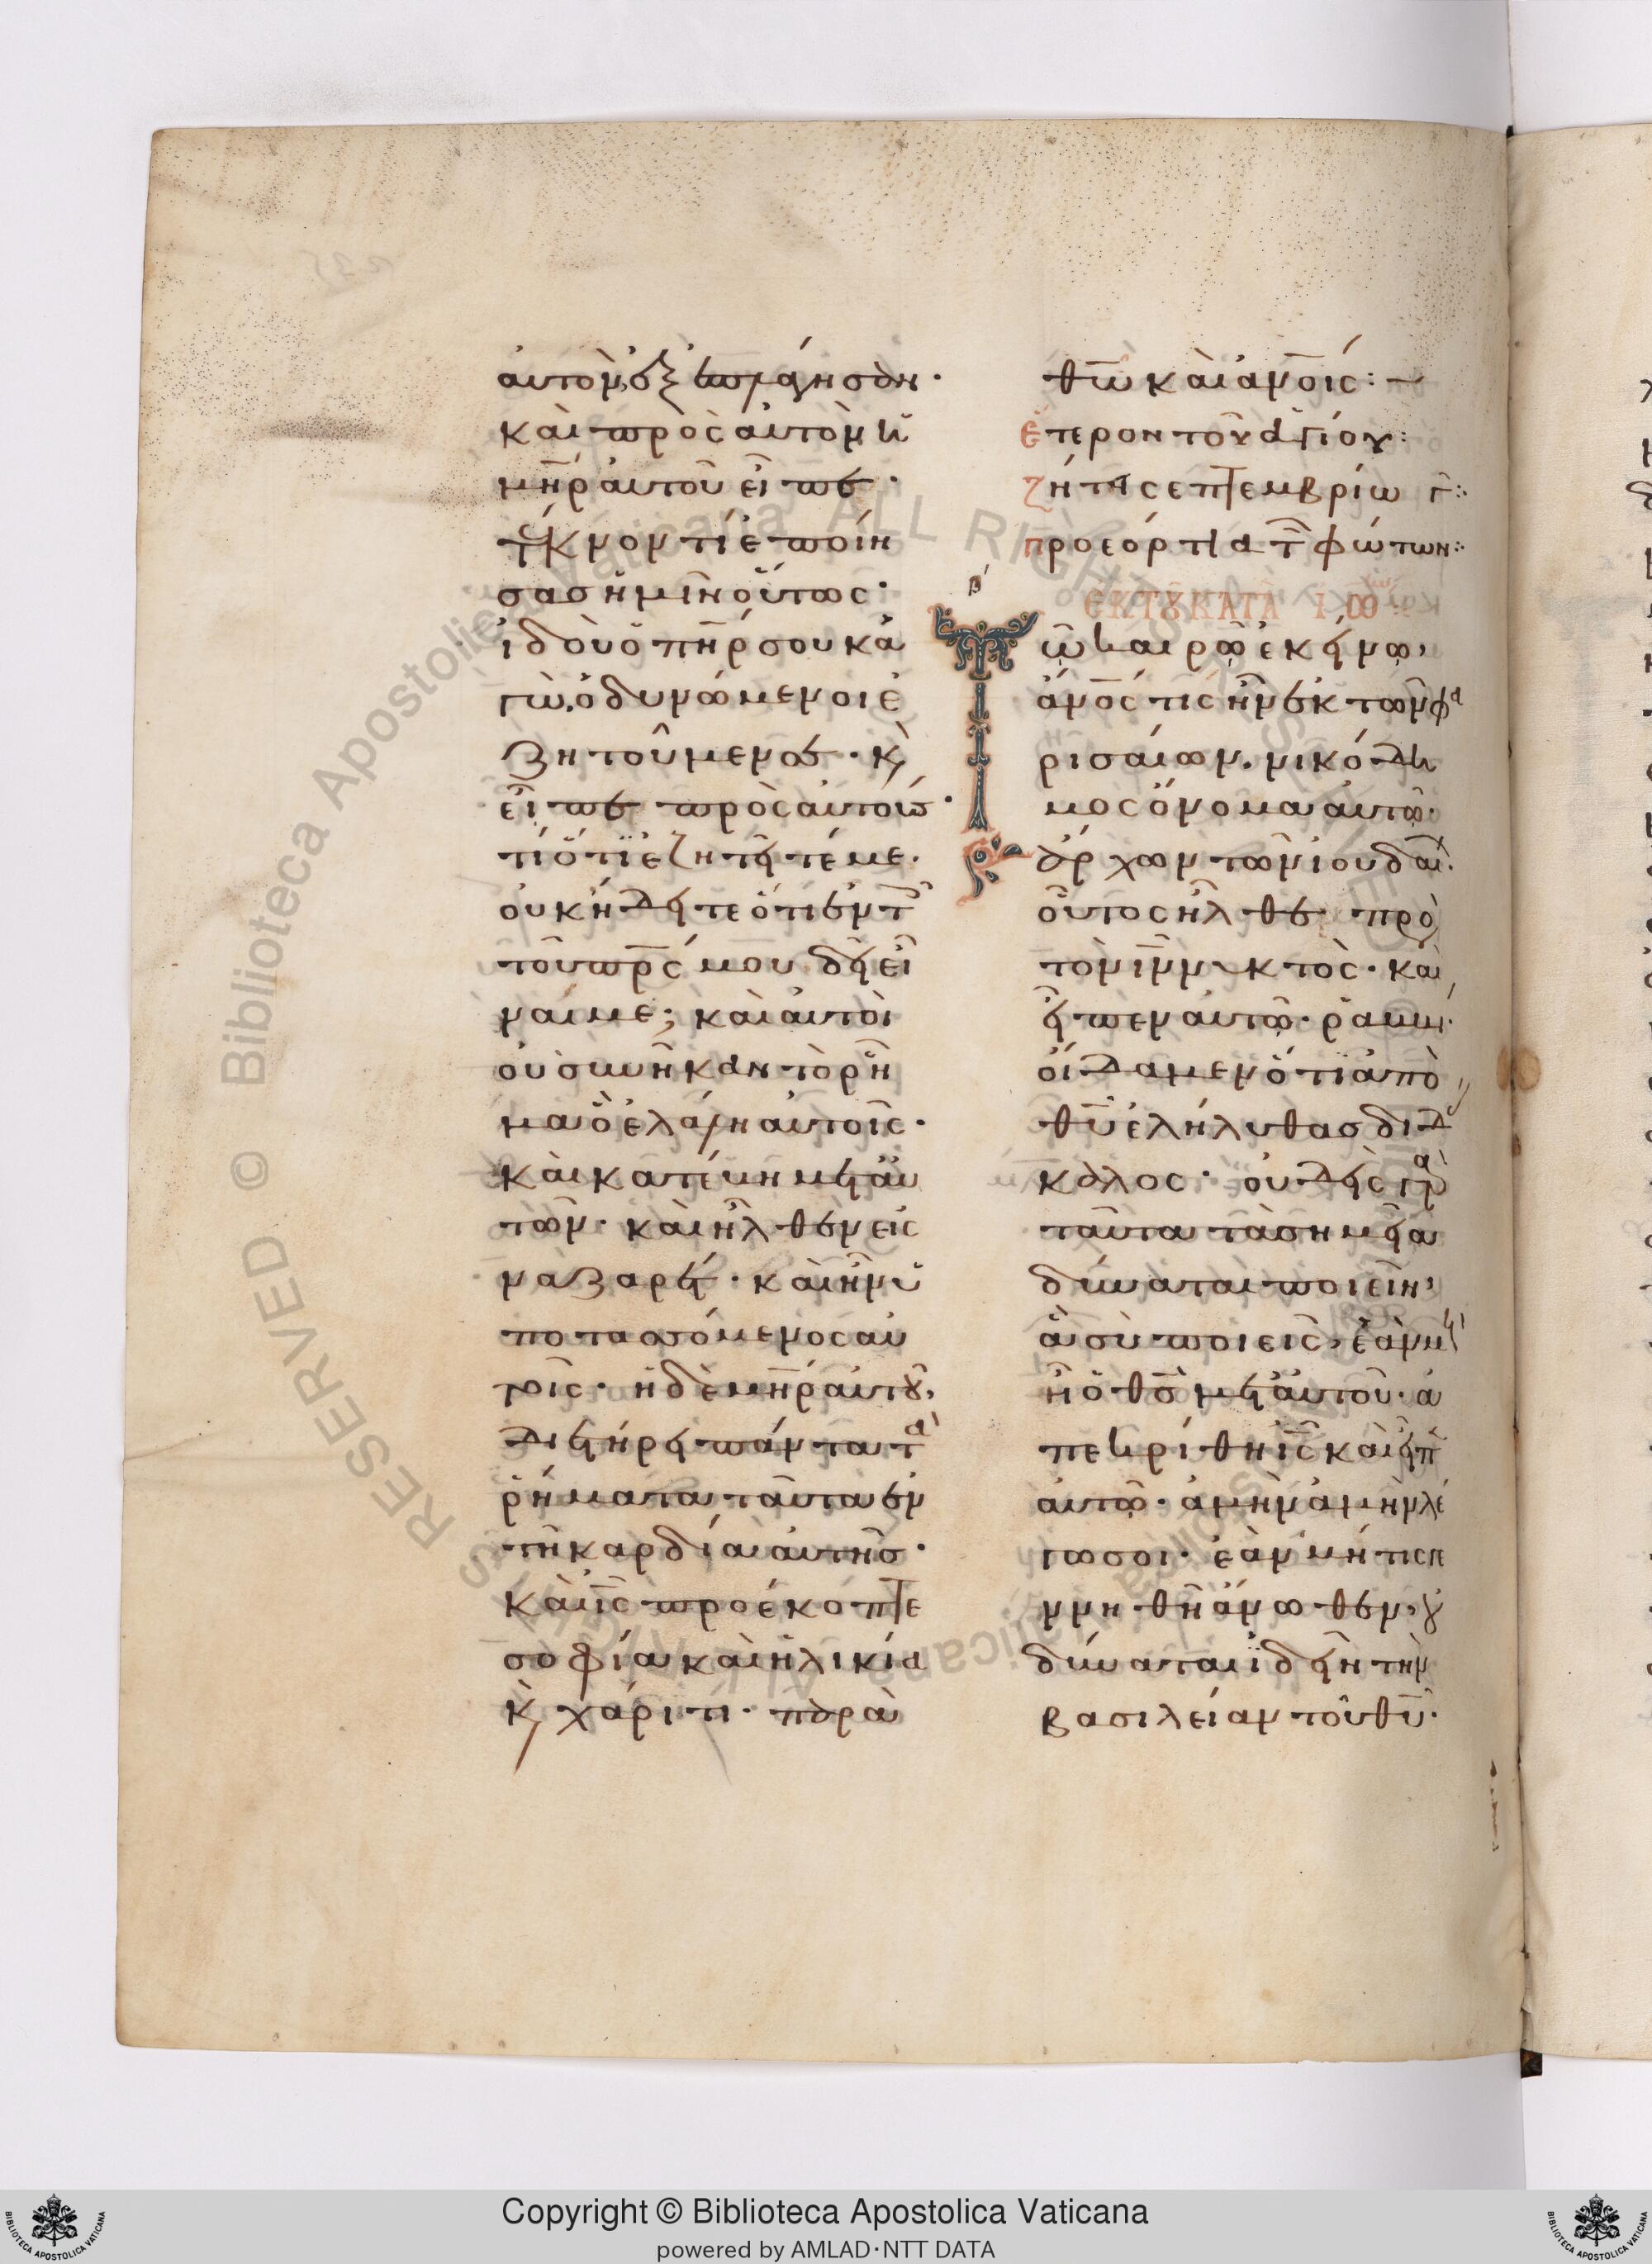 αὐτὸν, ἐξεπλάγησαν·
καὶ πρὸς αὐτὸν ἡ
μη̅ρ αὐτοῦ εἶπε·
τέκνον τί ἐποίη
σας ἡμῖν οὕτως·
ἰδοὺ ὁ πη̅ρ σου κἀ
γὼ, ὀδυνώμενοι ἐ
ζητοῦμέν σε· κ̀
εἶπε πρὸς αὐτούς·
τί ὅτι ἐζητεῖτέ με·
οὐκ ἤδειτε ὅτι ἐν τ
τοῦ πρ̅ς μου δεῖ εἶ
ναί με; καὶ αὐτοὶ
οὐ συνῆκαν τὸ ῥῆ
μα ὃ ἐλάλησεν αὐτοῖς·
καὶ κατέβη μετ αὐ
τῶν· καὶ ἦλθεν εἰς
ναζαρέτ· καὶ ἦν ὑ
ποτασσόμενος αὐ
τοῖς· ἡ δὲ μη̅ρ αὐτοῦ,
διετήρει πάντα τὰ
ῥήματα ταῦτα ἐν
τῇ καρδίᾳ αὐτῆς·
καὶ ι̅ς προέκοπτε
σοφίᾳ καὶ ἡλικίᾳ
κ̀ χάριτι· παρὰ
θ̅ω καὶ ἀν̅οις:~
ἕτερον τοῦ ἁγίου:
ζήτ σεπτεμβρίω γ:·
προεόρτια τ φώτων:·
β
ΕΚ ΤΟΥ ΚΑΤΑ ΙΩ
Τῷ καιρῷ ἐκείνῳ,
ἄν̅ος τις ἦν ἐκ τῶν φα
ρισαίων. νικόδη
μος ὄνομα αὐτῷ·
ἄρχων τῶν ἰουδαί·
οὗτος ἦλθε πρὸ
τὸν ι̅ν νυκτὸς· καὶ
εἶπεν αὐτῷ· ῥαββι·
οἴδαμεν ὅτι ἀπὸ
θ̅υ ἐλήλυθας διδ
καλος· οὐδεὶς γὰρ
ταῦτα τὰ σημεῖα
δύναται ποιεῖν,
ἃ σὺ ποιεῖς, ἐὰν μὴ
ἦ ὁ θ̅ς μετ αὐτοῦ· ἀ
πεκρίθη ι̅ς καὶ εἶπ
αὐτῷ· ἀμὴν ἀμὴν λέ
γω σοι· ἐὰν μή τις γε
ννηθῇ ἄνωθεν, οὐ
δύναται ἰδεῖν τὴν
βασιλείαν τοῦ θ̅υ·
© Biblioteca Apostolica Vaticana ALL RIGHTS RESERVED
Copyright © Biblioteca Apostolica Vaticana
powered by AMLAD·NTT DATA
BIBLIOTECA APOSTOLICA VATICANA
BIBLIOTECA APOSTOLICA VATICANA